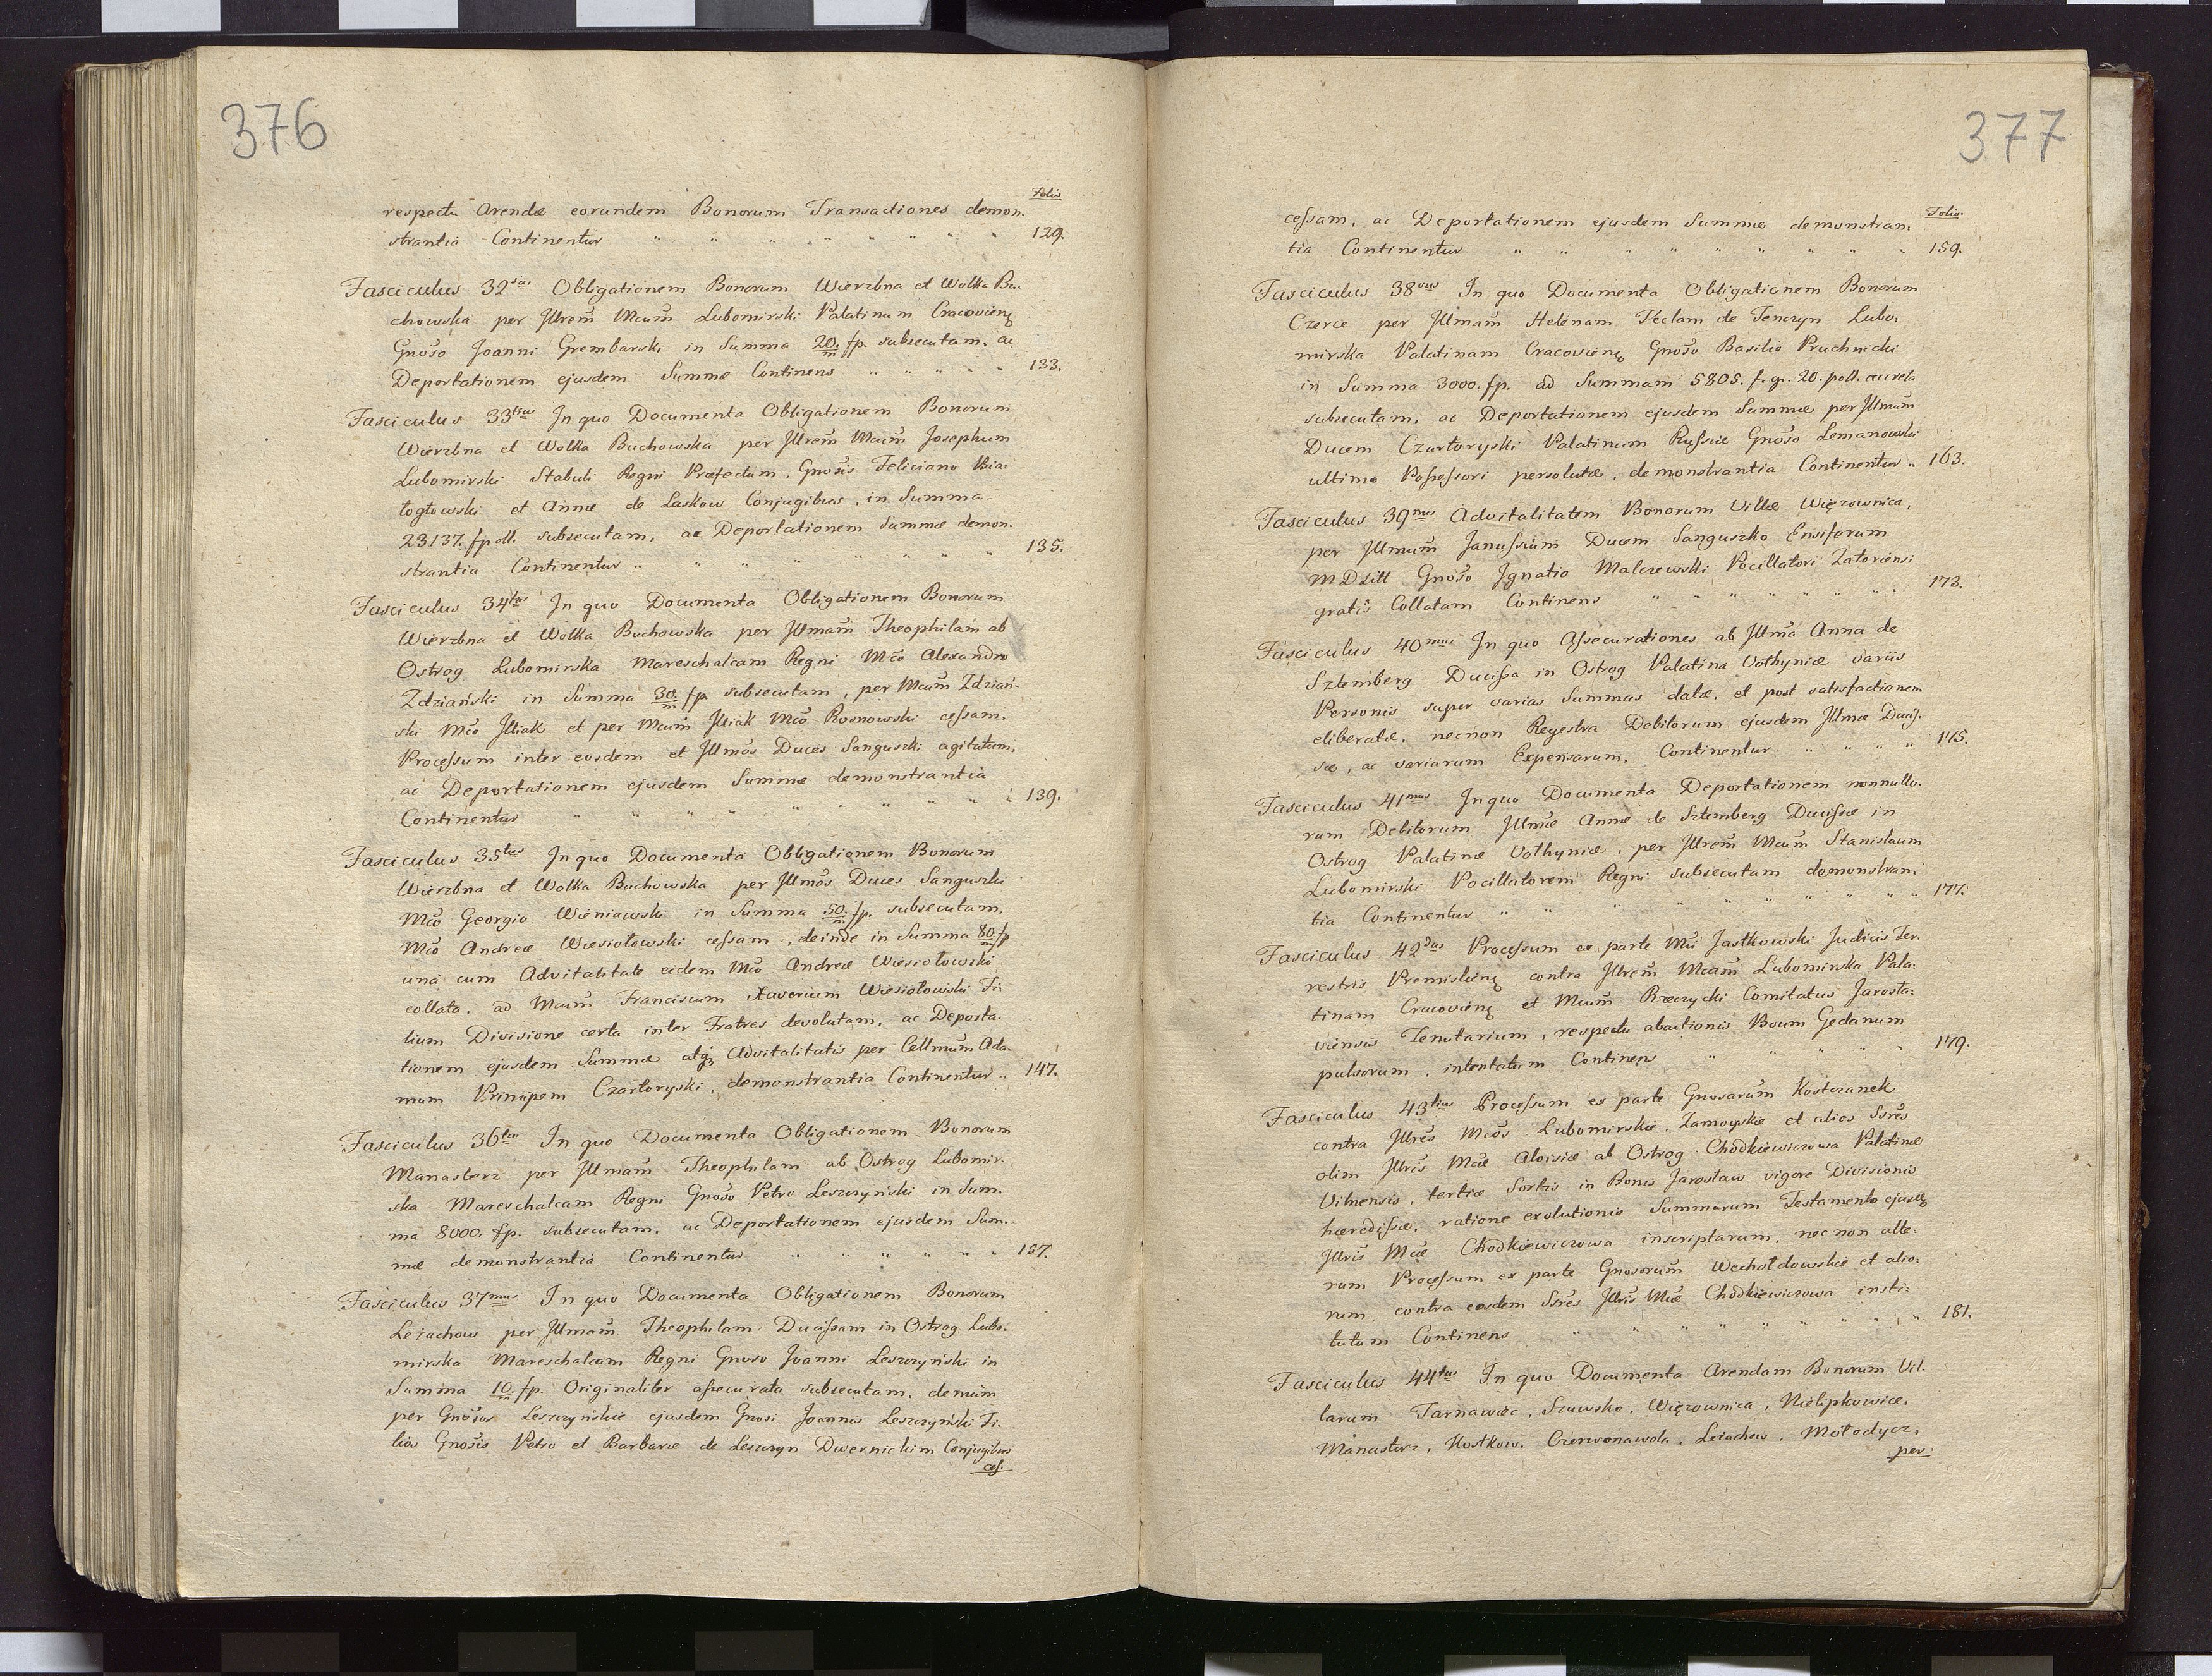 376
Folio
respectu Arendæ eorundem Bonorum Transactiones demon.
strantia Continentur " " " " " " " 129.
Fasciculus 32dus Obligationem Bonorum Wierzbna et Wolka Bu.
chowska per Jllrem Mcum Lubomirski Palatinum Cracovienę
Gnoso Joanni Grembarski in Summa 20/m fp. subsecutam, ac
Deportationem ejusdem Summæ Continens " " " " " 133.
Fasciculus 33tius In quo Documenta Obligationem Bonorum
Wierzbna et Wolka Buchowska per Jllrem Mcum Josephum
Lubomirski Stabuli Regni Præfectum, Gnosis Feliciano Bia:
łogłowski et Annæ de Laskow Conjugibus, in Summa
23137. fp oll. subsecutam, ac Deportationem Summæ demon.
strantia Continentur " " " " " " " " 135.
Fasciculus 34tus In quo Documenta Obligationem Bonorum
Wierzbna et Wolka Buchowska per Jllmam Theophilam ab
Ostrog Lubomirska Mareschalcam Regni Mco Alexandro
Zdziański in Summa 30/m fp subsecutam, per Mcum Zdziań-
ski Mco Jlliak et per Mcum Jlliak Mco Rosnowski cessam.
Processum inter eosdem et Jllmos Duces Sanguszki agitatum,
ac Deportationem ejusdem Summæ demonstrantia
Continentur " " " " " " " " " 139.
Fasciculus 35tus In quo Documenta Obligationem Bonorum
Wierzbna et Wolka Buchowska per Jllmos Duces Sanguszki
Mco Georgio Wieniawski in Summa 50/m fp. subsecutam,
Mco Andreæ Wiesiołowski cessam, deinde in Summa 80/m fp
una cum Advitalitate eidem Mco Andreæ Wiesiołowski
collata, ad Mcum Franciscum Xaverium Wiesiołowski Fi.
lium Divisione certa inter Fratres devolutam, ac Deporta.
tionem ejusdem Summæ atqȝ Advitalitatis per Cellmum Ada.
mum Principem Czartoryski, demonstrantia Continentur .. 147.
Fasciculus 36tus In quo Documenta Obligationem Bonorum
Manasterz per Jllmam Theophilam ab Ostrog Lubomir.
ska Mareschalcam Regni Gnoso Petro Leszczyński in Sum.
ma 8000. fp. subsecutam, ac Deportationem ejusdem Sum.
mæ demonstrantia Continentur " " " " " " " 157.
Fasciculus 37mus In quo Documenta Obligationem Bonorum
Leżachow per Jllmam Theophilam Ducissam in Ostrog Lubo.
mirska Mareschalcam Regni Gnoso Joanni Leszczyński in
Summa 10/m fp. Originaliter assecurata subsecutam, demum
per Gnosos Leszczyńskie ejusdem Gnosi Joannis Leszczyński Fi.
lios Gnosis Petro et Barbaræ de Leszczyn Dwernickim Conjugibus
ces.
377
Folio.
cessam, ac Deportationem ejusdem Summæ demonstran.
tia Continentur " " " " " " " " " 159.
Fasciculus 38vus In quo Documenta Obligationem Bonorum
Czerce per Jllmam Helenam Teclam de Tenczyn Lubo.
mirska Palatinam Cracovienę Gnoso Basilio Pruchnicki
in Summa 3000. fp. ad Summam 5805. f. gr. 20. poll. accreta
subsecutam, ac Deportationem ejusdem Summæ per Jllmum
Ducem Czartoryski Palatinum Russiæ Gnoso Lemanowski
ultimo Possessori persolutæ, demonstrantia Continentur .. 163.
Fasciculus 39nus Advitalitatem Bonorum Villæ Więzownica,
per Jllmum Janussium Ducem Sanguszko Ensiferum
MDLitt Gnoso Ignatio Malczewski Pocillatori Zatoriensi
gratis Collatam Continens " " " " " " " 173.
Fasciculus 40mus In quo Assecurationes ab Jllma Anna de
Sztemberg Ducissa in Ostrog Palatina Volhyniæ variis
Personis super varias Summas datæ, et post satisfactionem
eliberatæ, necnon Regestra Debitorum ejusdem Jllmæ Ducis-
sæ, ac variarum Expensarum, Continentur " " " " 175.
Fasciculus 41mus In quo Documenta Deportationem nonnullo.
rum Debitorum Jllmæ Annæ de Sztemberg Ducissæ in
Ostrog Palatinæ Volhyniæ, per Jllrem Mcum Stanislaum
Lubomirski Pocillatorem Regni subsecutam demonstran.
tia Continentur " " " " " " " " " 177.
Fasciculus 42dus Processum ex parte Mci Jastkowski Judicis Ter.
restris Premislienę contra Jllrem Mcam Lubomirska Pala:
tinam Cracovienę et Mcum Rzeczycki Comitatus Jarosła:
viensis Tenutarium, respectu abactionis Boum Gedanum
pulsorum, intentatum Continens " " " " " 179.
Fasciculus 43tius Processum ex parte Gnosarum Kostczanek
contra Jllres Mcos Lubomirskie, Zamoyskie et alios Ssres
olim Jllris Mcæ Aloisiæ ab Ostrog Chodkiewiczowa Palatinæ
Vilnensis, tertiæ Sortis in Bonis Jarosław vigore Divisionis
hæredissæ, ratione exolutionis Summarum Testamento ejusdę
Jllris Mcæ Chodkiewiczowa inscriptarum, nec non alte:
rum Processum ex parte Gnosorum Wechołdowskie et alio:
rum contra eosdem Ssres Jllris Mcæ Chodkiewiczowa insti:
tutum Continens " " " " " " " " 181.
Fasciculus 44tus In quo Documenta Arendam Bonorum Vil.
larum Tarnawiec, Szuwsko, Więzownica, Nielipkowice,
Manasterz, Kostkow, Czerwonawola, Leżachow, Mołodycz,
per